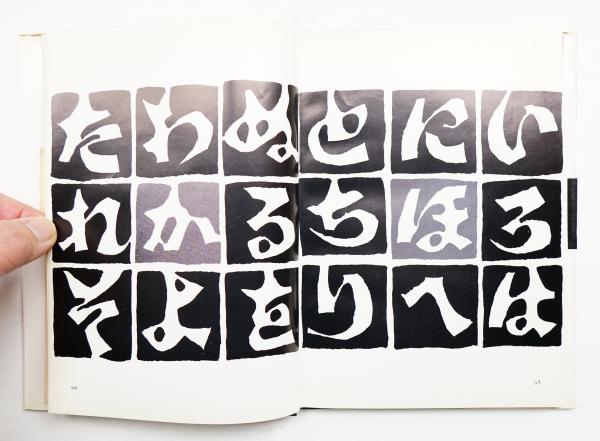 いろは
にほへ
とちり
ぬるを
わかよ
たれそ
98
99